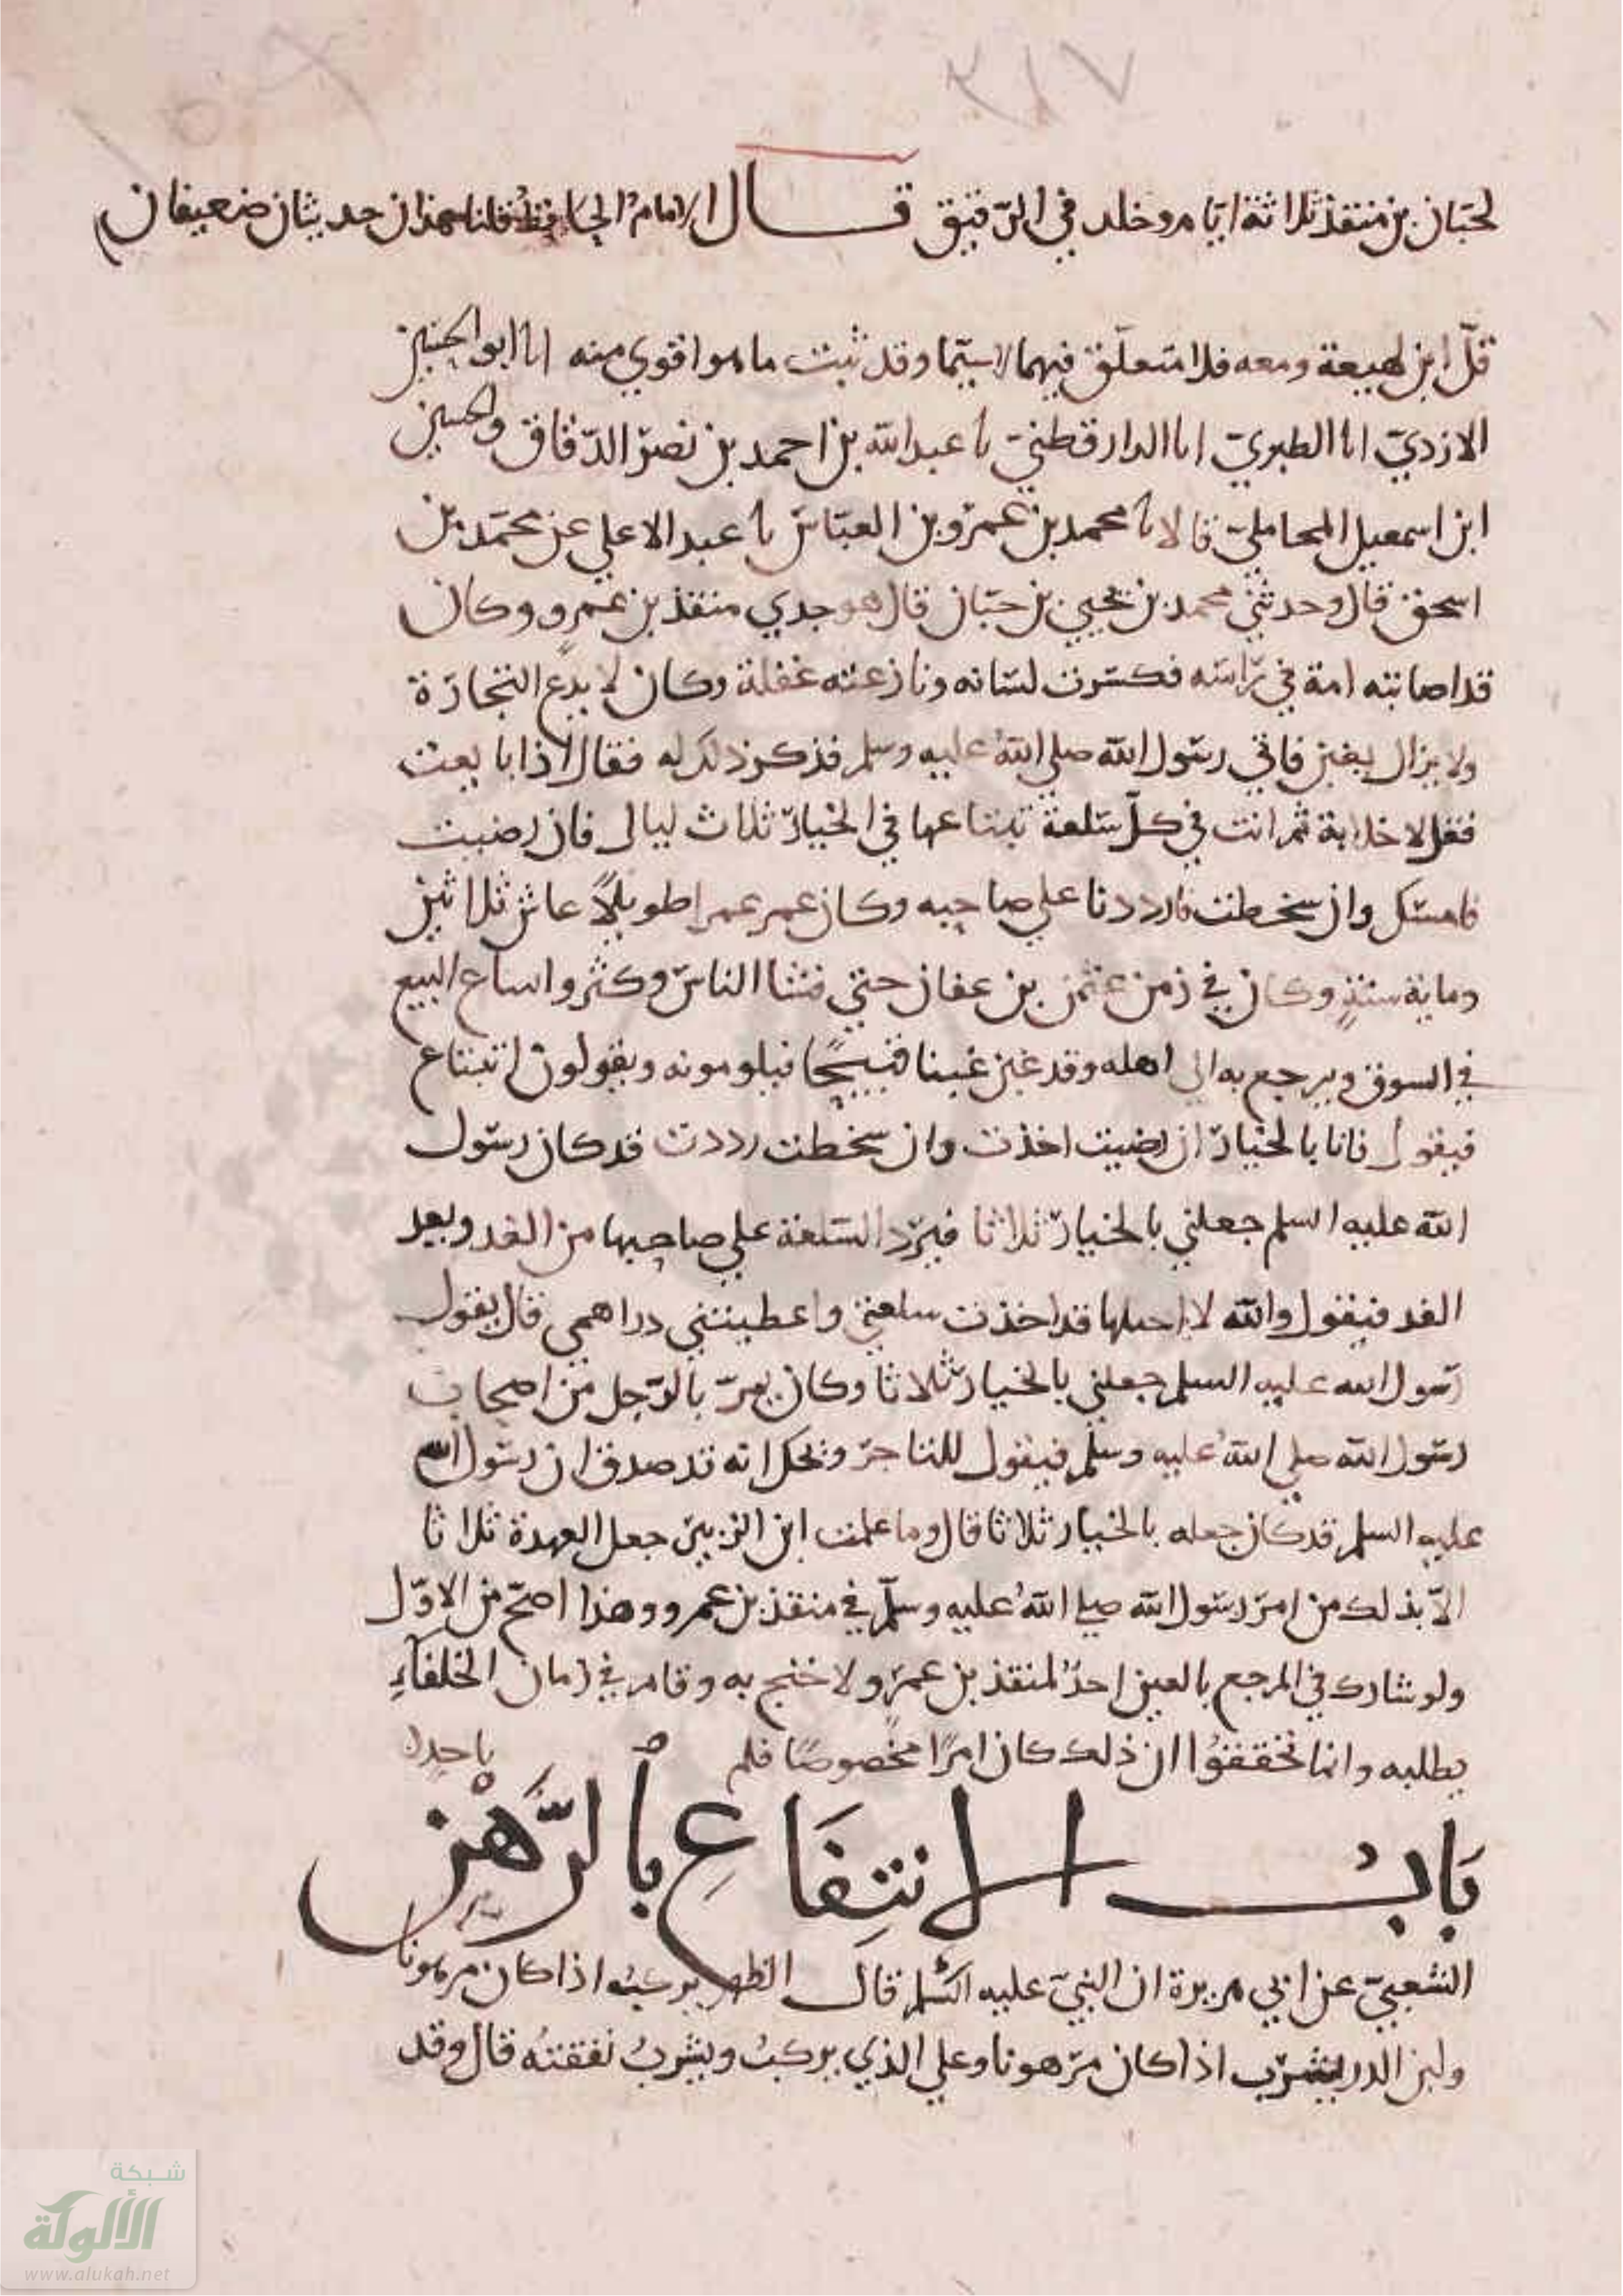 ٣١٧
١٥٨
لحبان بن منقذ ثلاثة ايام وخلد في الرقيق قال الامام الحافظ قلنا هذان حديثان ضعيفان
ابن لهيعة ومعه فلا متعلق فيهما لا سيما وقد ثبت ما هو اقوي منه انا ابو الحسين
الازدي انا الطبري انا الدارقطني نا عبد الله بن احمد بن نصر الدقاق والحسين
ابن اسمعيل المحاملي قالا نا محمد بن عمرو بن العباس نا عبد الاعلي عن محمد بن
اسحق قال وحدثني محمد بن يحيي بن حبان قال هو جدي منقذ بن عمرو وكان
قد اصابته امة في راسه فكسرت لسانه ونازعته عقله وكان لا يدع التجارة
ولا يزال يغبن فاتي رسول الله صلي الله عليه وسلم فذكر ذلك له فقال اذا بايعت
فقل لا خلابة ثم انت في كل سلعة تبتاعها في الخيار ثلاث ليالي فان رضيت
فامسك وان سخطت فارددها علي صاحبه وكان عمر عمرا طويلا عاش ثلاثين
وماية سنة وكان في زمن عثمن بن عفان حتي فشا الناس وكثروا ابتاع البيع
في السوق ويرجع به الي اهله وقد غبن غبنا قبيحا فيلومونه ويقولون اتبتاع
فيقول فانا بالخيار ان رضيت اخذت وان سخطت رددت قد كان رسول
الله عليه السلم جعلني بالخيار ثلاثا فيرد السلعة علي صاحبها من الغد وبعد
الغد فيقول والله لا اقبلها قد اخذت سلعتي واعطيتني دراهمي قال يقول
رسول الله عليه السلم جعلني بالخيار ثلاثا وكان يمر بالرجل من اصحاب
رسول الله صلي الله عليه وسلم فيقول للتاجر ويحك انه قد صدق ان رسول الله
عليه السلم قد كان جعله بالخيار ثلاثا قال وما علمت ابن الزبير جعل العهدة ثلاثا
الا بذلك من امر رسول الله صلي الله عليه وسلم في منقذ بن عمرو وهذا اصح من الاول
ولو شارك في المرجع بالعين احد لمنقذ بن عمرو لاحتج به وقام في زمان الخلفاء
يطلبه وانما تحققوا ان ذلك كان امرا مخصوصا فلم ياخذه
باب الانتفاع بالرهن
الشعبي عن ابي هريرة ان النبي عليه السلم قال الظهر يركب اذا كان مرهونا
ولبن الدر يشرب اذا كان مرهونا وعلي الذي يركب ويشرب نفقته قال وقد
شبكة
الألوكة
www.alukah.net